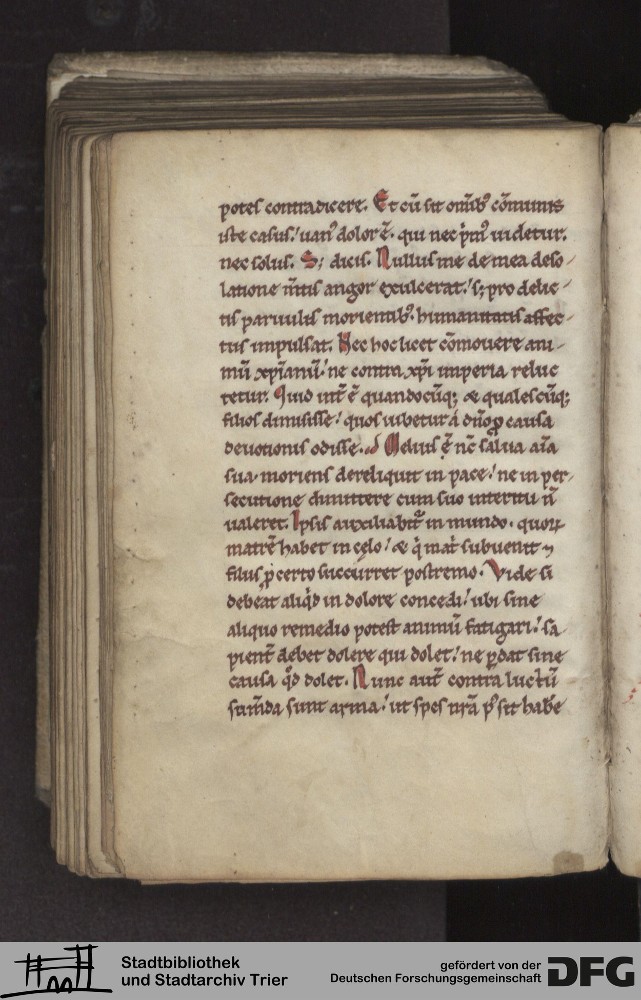 potes contradicere. Et cū sit omīb; cōmunis
iste casus! uan᷒ dolor ē. qui nec p̄m᷒ uidetur.
nec solus. S; dicis. Nullus me de mea deso
latione m̄tis angor exulcerat! s; pro dece
tis paruulis morientib᷒. humanitatis affec
tus impulsat. Nec hoc licet cōmouere ani
mū xp̄ianū! ne contra xp̄i imperia reluc
tetur. Quid int̄ ē quandocūq; æ qualescūq;
filios dimisisse! quos iubetur á dn̄o ꝓ causa
deuotionis odisse. Melius ē nc̄ salua aīa
sua moriens dereliquit in pace! ne in per
secutione dimittere cum suo interitu n̄
ualeret. Ipsis auxiliabit᷑ in mundo. quoꝝ
matrē habet in cęlo! æ q̇ mat᷑ subuenit
filius ꝓ certo succurret postremo. Vide si
debeat aliq̇d in dolore concedi! ubi sine
aliquo remedio potest animū fatigari! sa
pient᷑ debet dolere qui dolet! ne ꝑdat sine
causa qd̄ dolet. Nunc aut̄ contra luctū
sum̄da sunt arma! ut spes nr̄a p̄ sit habe
Stadtbibliothek
und Stadtarchiv Trier
gefördert von der
Deutschen Forschungsgemeinschaft
DFG